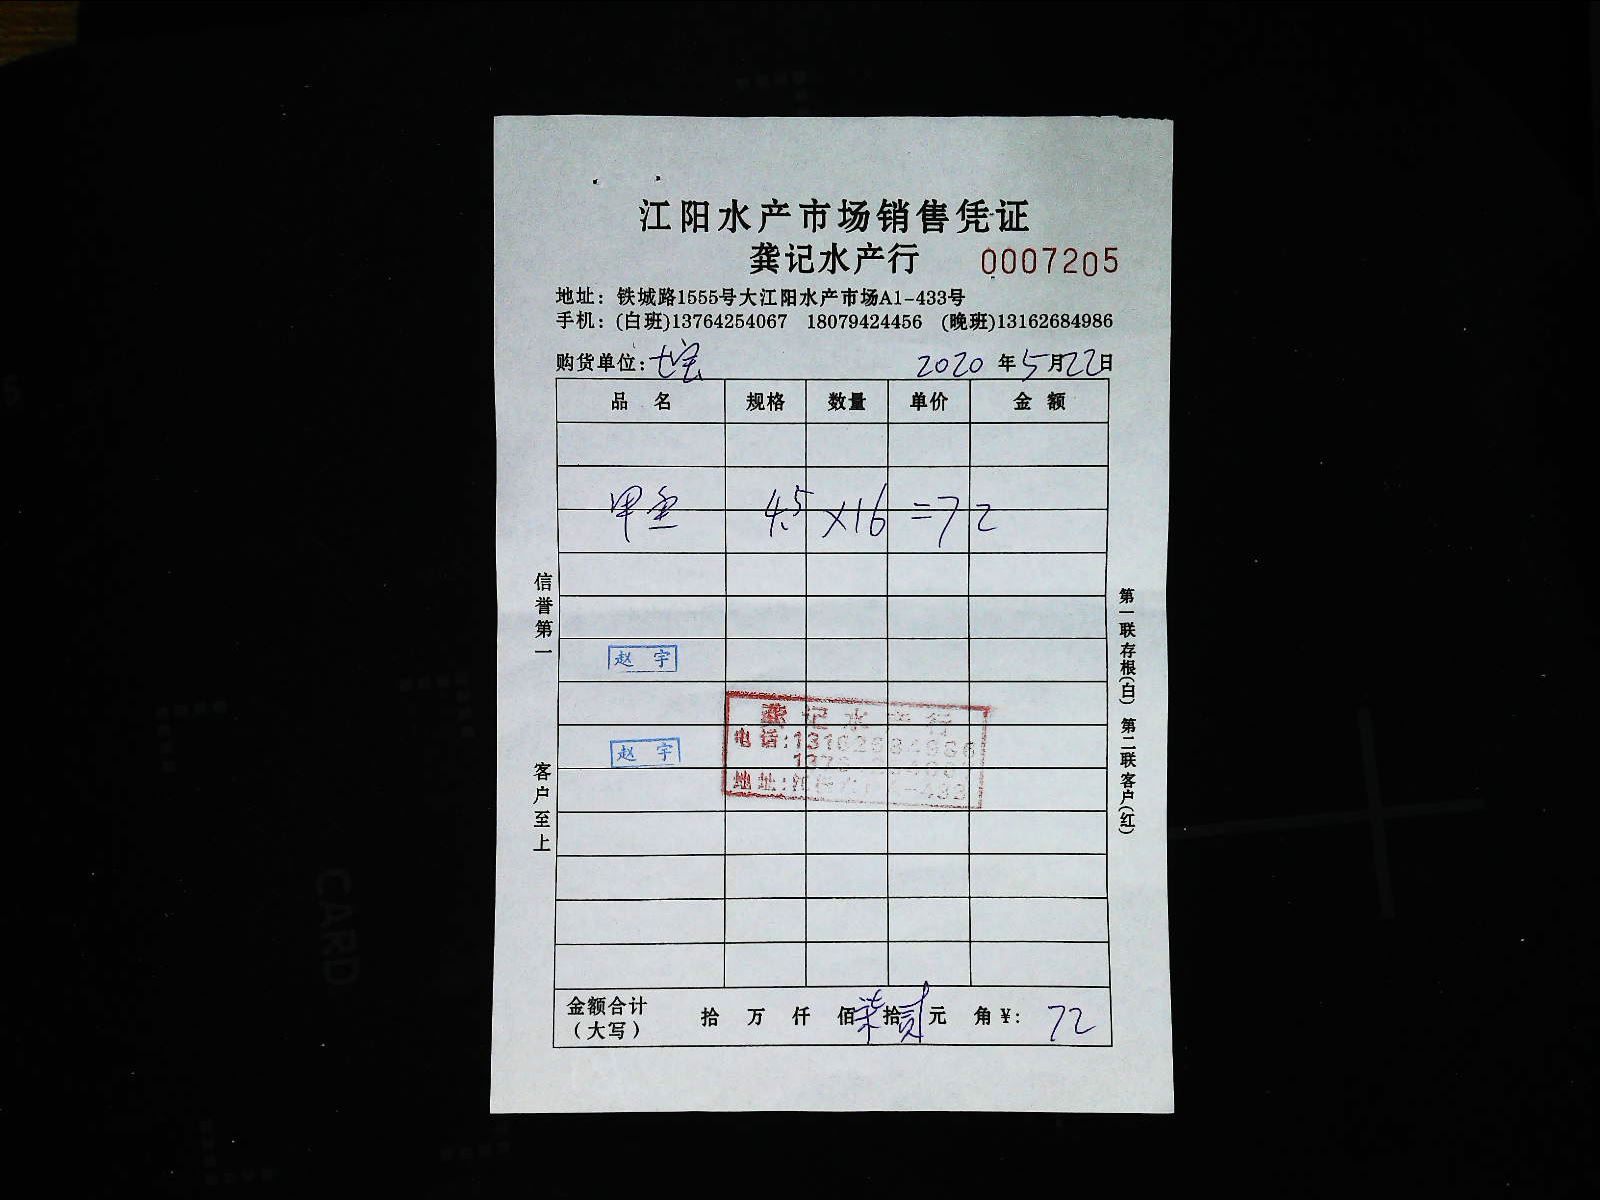 江阳水产市场销售凭证
龚记水产行 0007205
地址：铁城路1555号大江阳水产市场A1-433号
手机：(白班)13764254067 18079424456 (晚班)13162684986
购货单位：七宝 2020年5月22日
品名 规格 数量 单价 金额
甲鱼 4.5×16=72
信誉第一
客户至上
赵宇
赵宇
龚记水产行
电话:13162684986
地址:
第一联存根(白) 第二联客户(红)
金额合计(大写) 拾 万 仟 佰 柒拾贰元 角 ¥: 72
CARD